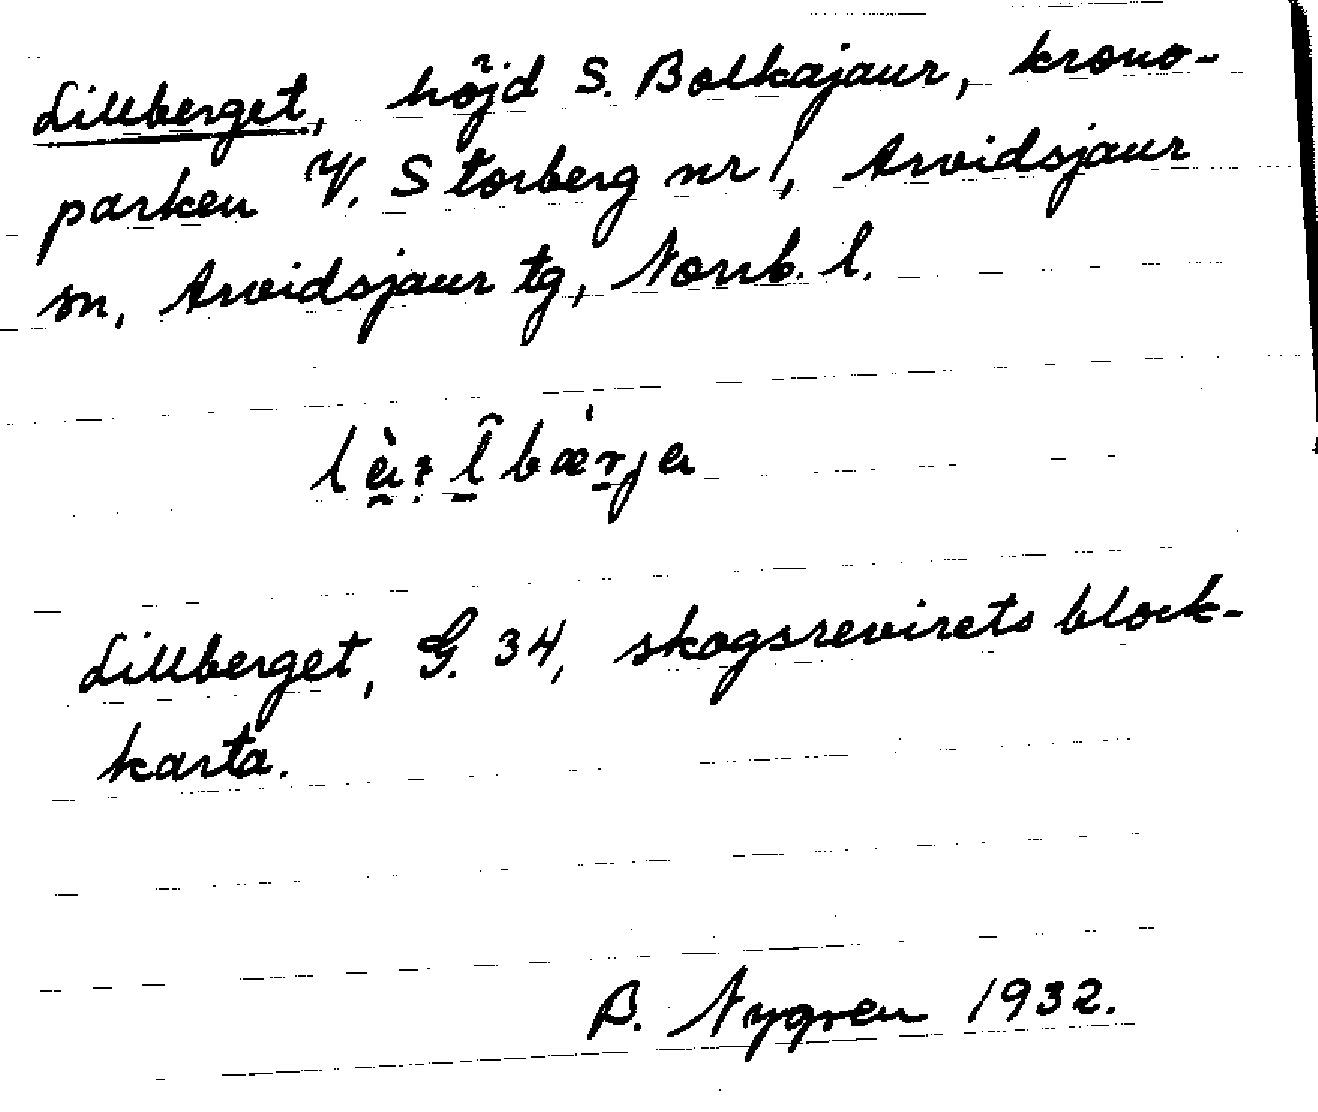 Lillberget, höjd S. Bolkajaur, krono-
parken V. Storberg nr 1, Arvidsjaur
sn, Arvidsjaur tg, Norrb. l.
Lillberget, G. 34, skogsrevirets block-
karta.
B. Nygren 1932.